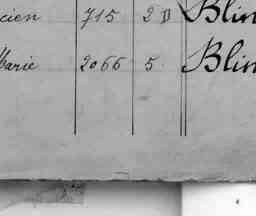 cien 715 2 D Blin
Marie 2066 5 Blin